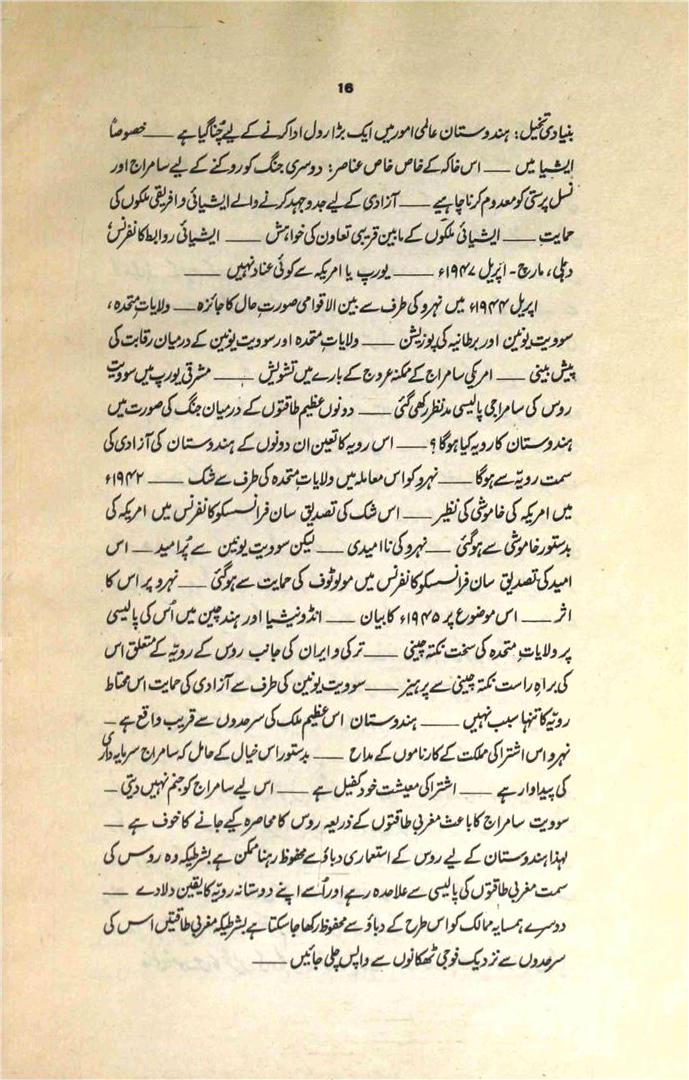 16
بنیادی تخیل: ہندوستان عالمی امور میں ایک بڑا رول ادا کرنے کے لیے چُنا گیا ہے —— خصوصاً
ایشیا میں —— اس خاکہ کے خاص خاص عناصر: دوسری جنگ کو روکنے کے لیے سامراج اور
نسل پرستی کو معدوم کرنا چاہیے —— آزادی کے لیے جدوجہد کرنے والے ایشیائی و افریقی ملکوں کی
حمایت —— ایشیائی ملکوں کے مابین قریبی تعاون کی خواہش —— ایشیائی روابط کانفرنس
دہلی، مارچ - اپریل ۱۹۴۷ء —— یورپ یا امریکہ سے کوئی عناد نہیں ——
اپریل ۱۹۴۴ء میں نہرو کی طرف سے بین الاقوامی صورتِ حال کا جائزہ —— ولایاتِ متحدہ،
سوویت یونین اور برطانیہ کی پوزیشن —— ولایاتِ متحدہ اور سوویت یونین کے درمیان رقابت کی
پیش بینی —— امریکی سامراج کے ممکنہ عروج کے بارے میں تشویش —— مشرقی یورپ میں سوویت
روس کی سامراجی پالیسی مدنظر رکھی گئی —— دونوں عظیم طاقتوں کے درمیان جنگ کی صورت میں
ہندوستان کا رویہ کیا ہوگا؟ —— اس رویہ کا تعین ان دونوں کے ہندوستان کی آزادی کی
سمت رویّہ سے ہوگا —— نہرو کو اس معاملہ میں ولایاتِ متحدہ کی طرف سے شک —— ۱۹۴۲ء
میں امریکہ کی خاموشی کی نظیر —— اس شک کی تصدیق سان فرانسسکو کانفرنس میں امریکہ کی
بدستور خاموشی سے ہوگئی —— نہرو کی ناامیدی —— لیکن سوویت یونین سے پُرامید —— اس
امید کی تصدیق سان فرانسسکو کانفرنس میں مولوٹوف کی حمایت سے ہوگئی —— نہرو پر اس کا
اثر —— اس موضوع پر ۱۹۴۵ء کا بیان —— انڈونیشیا اور ہند چین میں اُس کی پالیسی
پر ولایاتِ متحدہ کی سخت نکتہ چینی —— ترکی و ایران کی جانب روس کے رویّہ کے متعلق اس
کی براہِ راست نکتہ چینی سے پرہیز —— سوویت یونین کی طرف سے آزادی کی حمایت اس محتاط
رویّہ کا تنہا سبب نہیں —— ہندوستان اس عظیم ملک کی سرحدوں سے قریب واقع ہے —
نہرو اس اشتراکی مملکت کے کارناموں کے مداح —— بدستور اس خیال کے حامل کہ سامراج سرمایہ داری
کی پیداوار ہے —— اشتراکی معیشت خود کفیل ہے —— اس لیے سامراج کو جنم نہیں دیتی —
سوویت سامراج کا باعث مغربی طاقتوں کے ذریعہ روس کا محاصرہ کیے جانے کا خوف ہے —
لہٰذا ہندوستان کے لیے روس کے استعماری دباؤ سے محفوظ رہنا ممکن ہے بشرطیکہ وہ روس کی
سمت مغربی طاقتوں کی پالیسی سے علاحدہ رہے اور اُسے اپنے دوستانہ رویّہ کا یقین دلادے —
دوسرے ہمسایہ ممالک کو اس طرح کے دباؤ سے محفوظ رکھا جا سکتا ہے بشرطیکہ مغربی طاقتیں اس کی
سرحدوں سے نزدیک فوجی ٹھکانوں سے واپس چلی جائیں ——